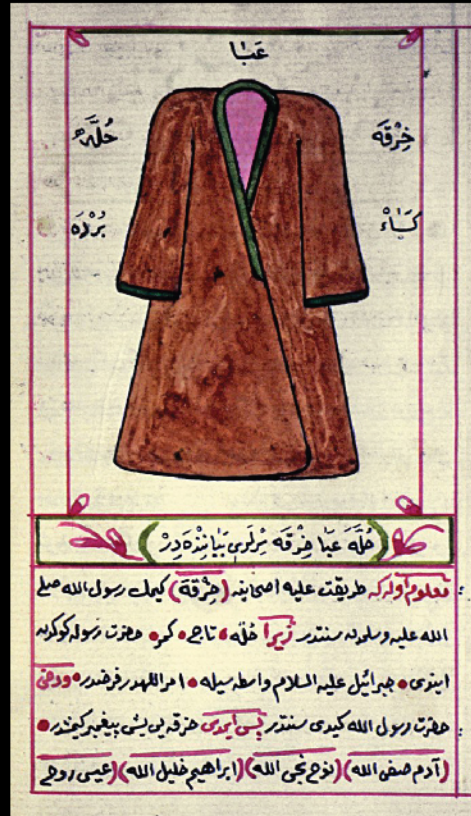 عَبَا
خِرْقَه
حُلَّه
كِسَاءْ
بُرْدَه
حُلَّه عَبَا خِرْقَه سِرلَرِى بَيَانِنْدَه دِرْ
معلوم اوله كه طريقت عليه اصحابنه (خِرْقَة) كيمك رسول الله صلى
الله عليه وسلمدن سنتدر زيرا حُلّه، تاج، كمر حضرت رسوله كوكدن
ايندى جبرائيل عليه السلام واسطه سيله امر اللهدر فرضدر ودخى
حضرت رسول الله كيدى سنتدر پس ايمدى خرقه يى يتى پيغمبر كيمشدر
(آدم صفى الله) (نوح نجى الله) (ابراهيم خليل الله) (عيسى روح